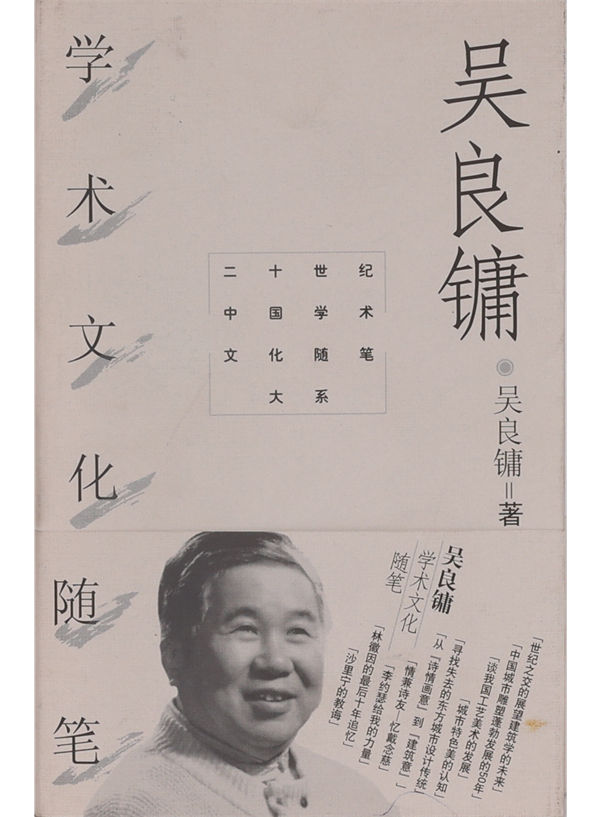 吴良镛
学术文化随笔
二十世纪
中国学术
文化随笔
大系
吴良镛=著
吴良镛
学术文化
随笔
「世纪之交的展望建筑学的未来」
「中国城市雕塑蓬勃发展的50年」
「谈我国工艺美术的发展」
「城市特色美的认知」
「寻找失去的东方城市设计传统」
「从「诗情画意」到「建筑意」」
「情兼诗友—忆戴念慈」
「李约瑟给我的力量」
「林徽因的最后十年追忆」
「沙里宁的教诲」